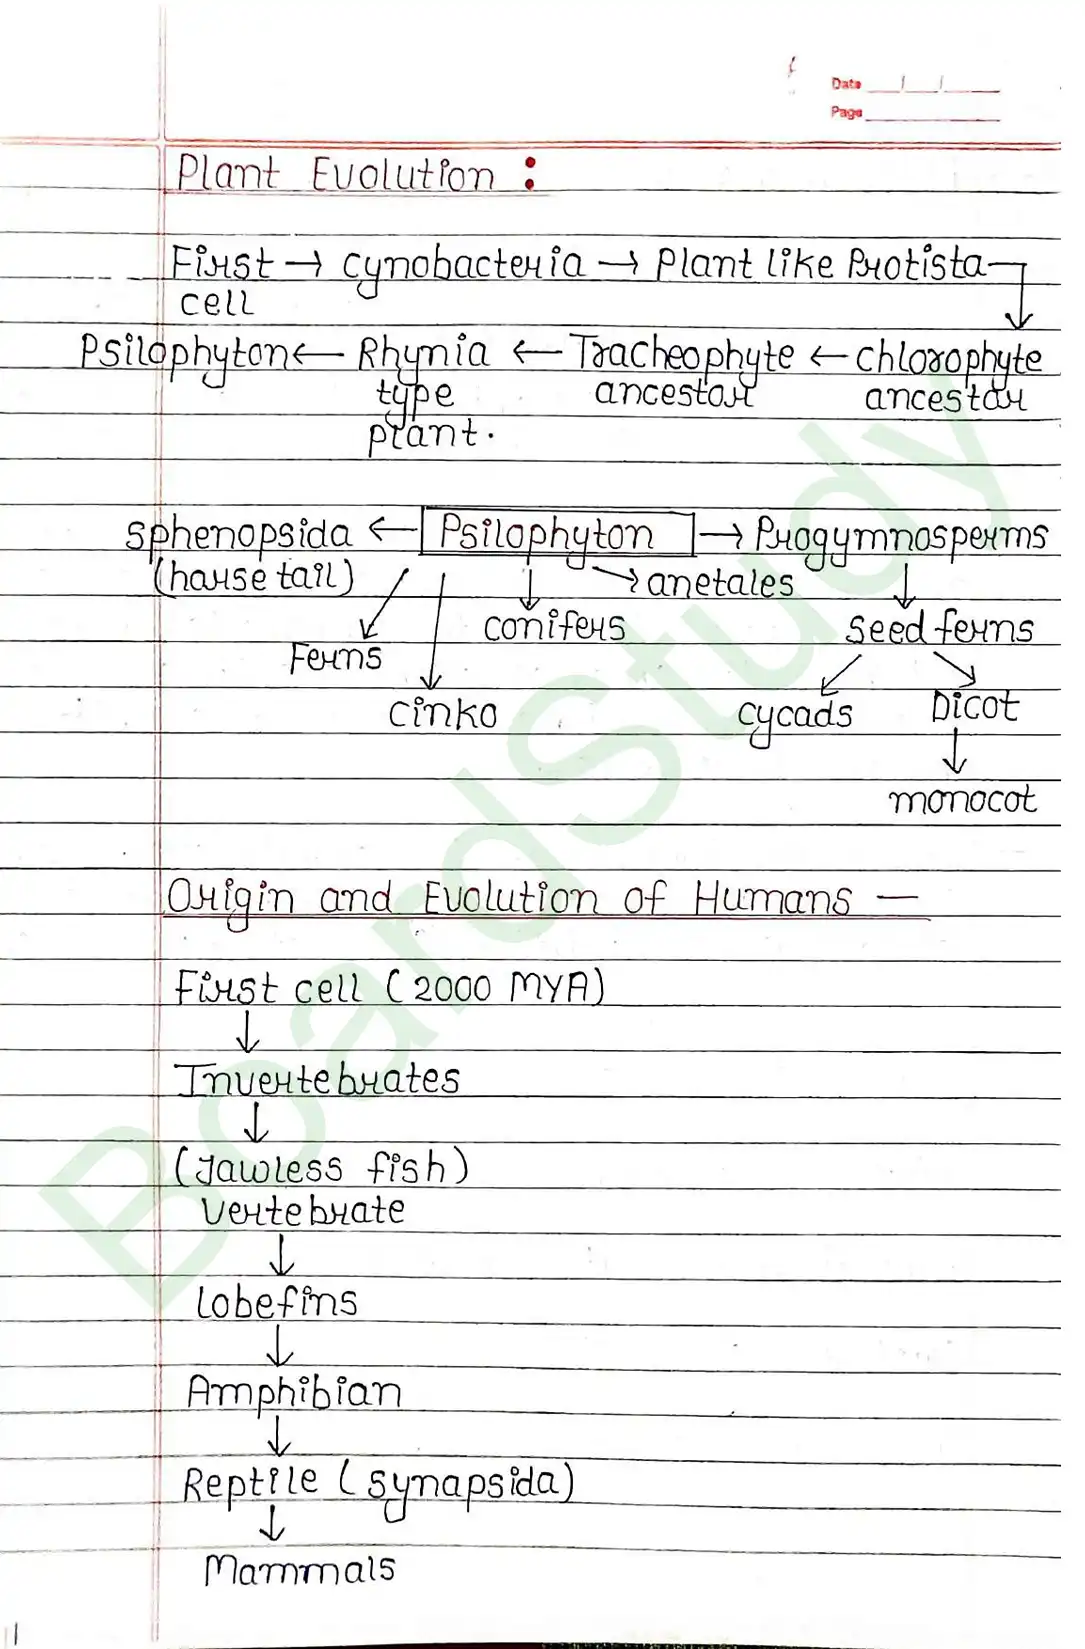 Date
Page
Plant Evolution :
First → cynobacteria → Plant like Protista
cell
Psilophyton ← Rhynia ← Tracheophyte ← chlorophyte
type ancestor ancestor
plant.
sphenopsida ← Psilophyton → Progymnosperms
(horse tail) → anetales
conifers seed ferns
Ferns
cinko cycads Dicot
monocot
Origin and Evolution of Humans —
First cell (2000 MYA)
↓
Invertebrates
↓
(Jawless fish)
Vertebrate
↓
Lobefins
↓
Amphibian
↓
Reptile (synapsida)
↓
Mammals
BoardStudy